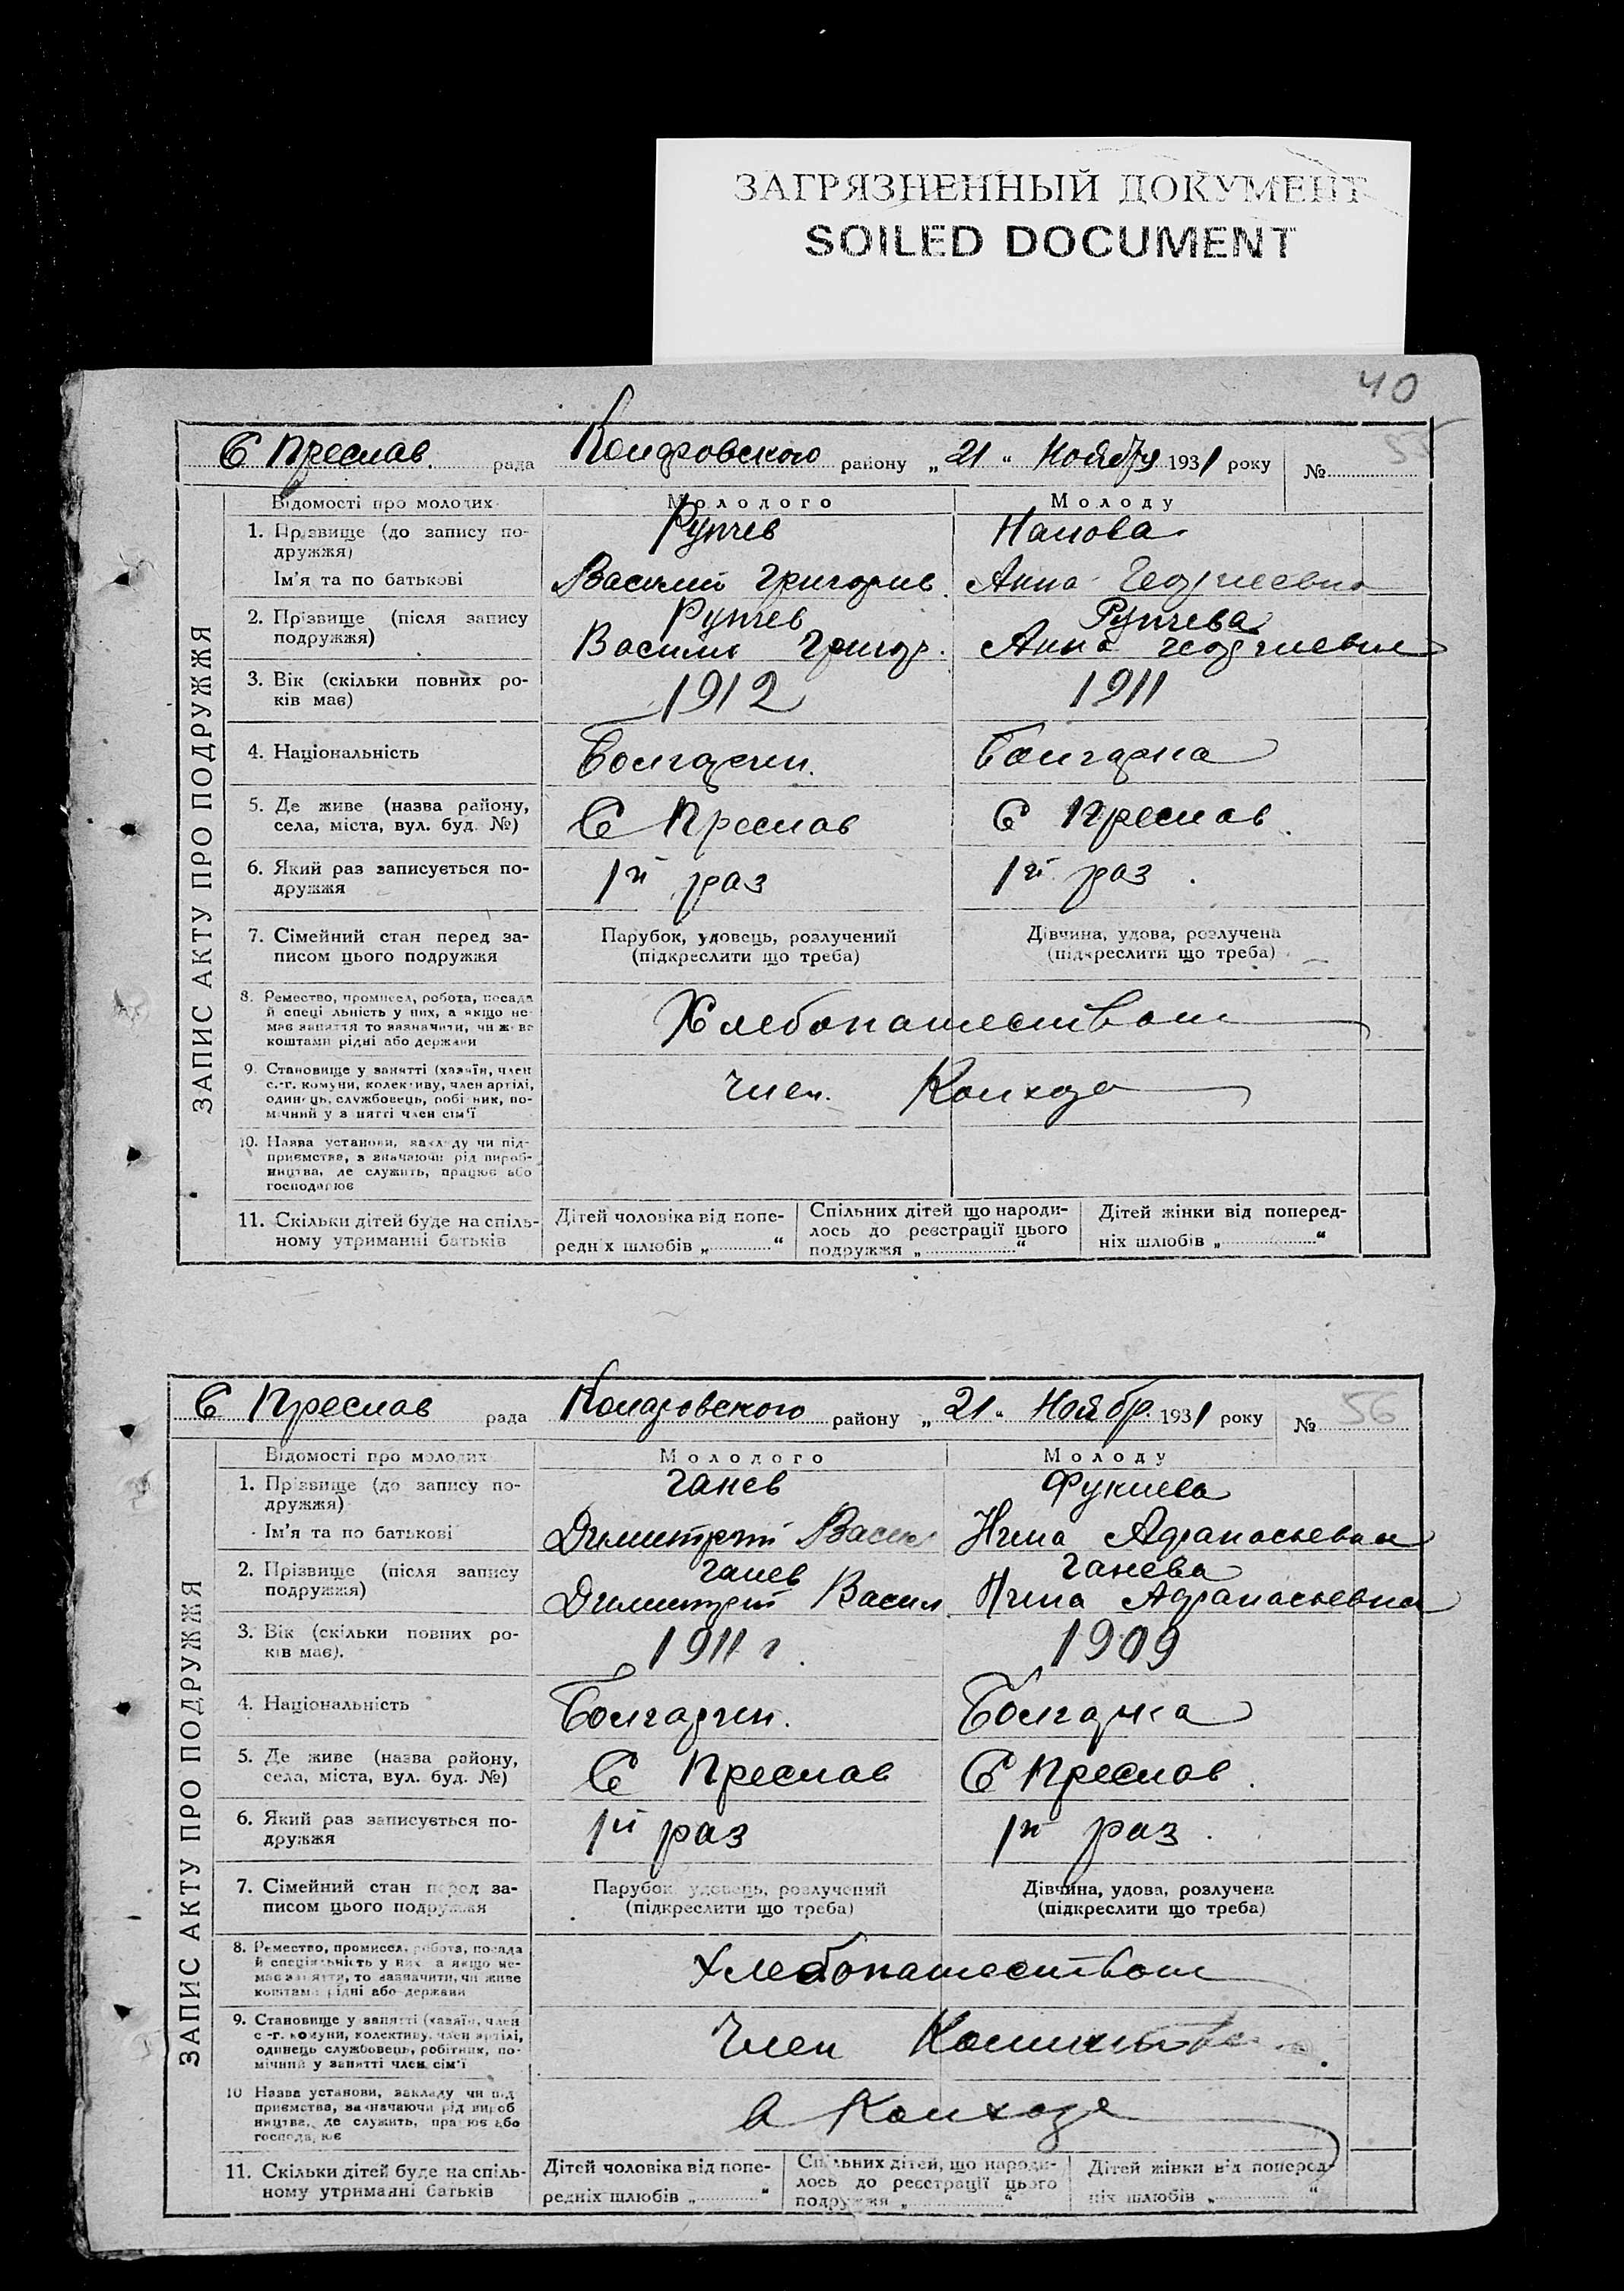 ЗАГРЯЗНЕННЫЙ ДОКУМЕНТ
SOILED DOCUMENT
40
С Преслав рада Коларовского району „21“ Ноября 1931 року № 55
ЗАПИС АКТУ ПРО ПОДРУЖЖЯ
Відомості про молодих Молодого Молоду
1. Прізвище (до запису подружжя) Рупчев Нанова
Ім'я та по батькові Василий Григорив. Анна Георгиевна
2. Прізвище (після запису подружжя) Рупчев Рупчева
Василий Григор. Анна Георгиевна
3. Вік (скільки повних років має) 1912 1911
4. Національність Болгарин. Болгарка
5. Де живе (назва району, села, міста, вул. буд. №) С Преслав С Преслав.
6. Який раз записується подружжя 1й раз 1й раз.
7. Сімейний стан перед записом цього подружжя Парубок, удовець, розлучений (підкреслити що треба) Дівчина, удова, розлучена (підкреслити що треба)
8. Ремество, промисел, робота, посада й спеціальність у них, а якщо немає заняття то зазначити, чи живе коштами рідні або держави Хлебопашеством
9. Становище у занятті (хазяїн, член с.-г. комуни, колективу, член артілі, одинець, службовець, робітник, помічний у занятті член сім'ї Член. Колхоза
10. Назва установи, закладу чи підприємства, зазначаючи рід виробництва, де служить, працює або господарює
11. Скільки дітей буде на спільному утриманні батьків Дітей чоловіка від попередніх шлюбів „ “ Спільних дітей що народилось до реєстрації цього подружжя „ “ Дітей жінки від попередніх шлюбів „ “
С Преслав рада Коларовского району „21“ Ноябр. 1931 року № 56
ЗАПИС АКТУ ПРО ПОДРУЖЖЯ
Відомості про молодих Молодого Молоду
1. Прізвище (до запису подружжя) Ганев
Ім'я та по батькові Димитрий Васил Нина Афанасьевна
2. Прізвище (після запису подружжя) Ганев Ганева
Димитрий Васил Нина Афанасьевна
3. Вік (скільки повних років має). 1911 г. 1909
4. Національність Болгарин. Болгарка
5. Де живе (назва району, села, міста, вул. буд. №) С Преслав С Преслав.
6. Який раз записується подружжя 1й раз 1й раз.
7. Сімейний стан перед записом цього подружжя Парубок, удовець, розлучений (підкреслити що треба) Дівчина, удова, розлучена (підкреслити що треба)
8. Ремество, промисел, робота, посада й спеціяльність у них а якщо немає заняття, то зазначити, чи живе коштами рідні або держави Хлебопашеством
9. Становище у занятті (хазяїн, член с-г. комуни, колективу, член артілі, одинець службовець, робітник, помічний у занятті член сім'ї Член
10 Назва установи, закладу чи підприємства, зазначаючи рід виробництва, де служить, працює або господарює в Колхозе
11. Скільки дітей буде на спільному утриманні батьків Дітей чоловіка від попередніх шлюбів „ “ Спільних дітей, що народилось до реєстрації цього подружжя „ “ Дітей жінки від попередніх шлюбів „ “